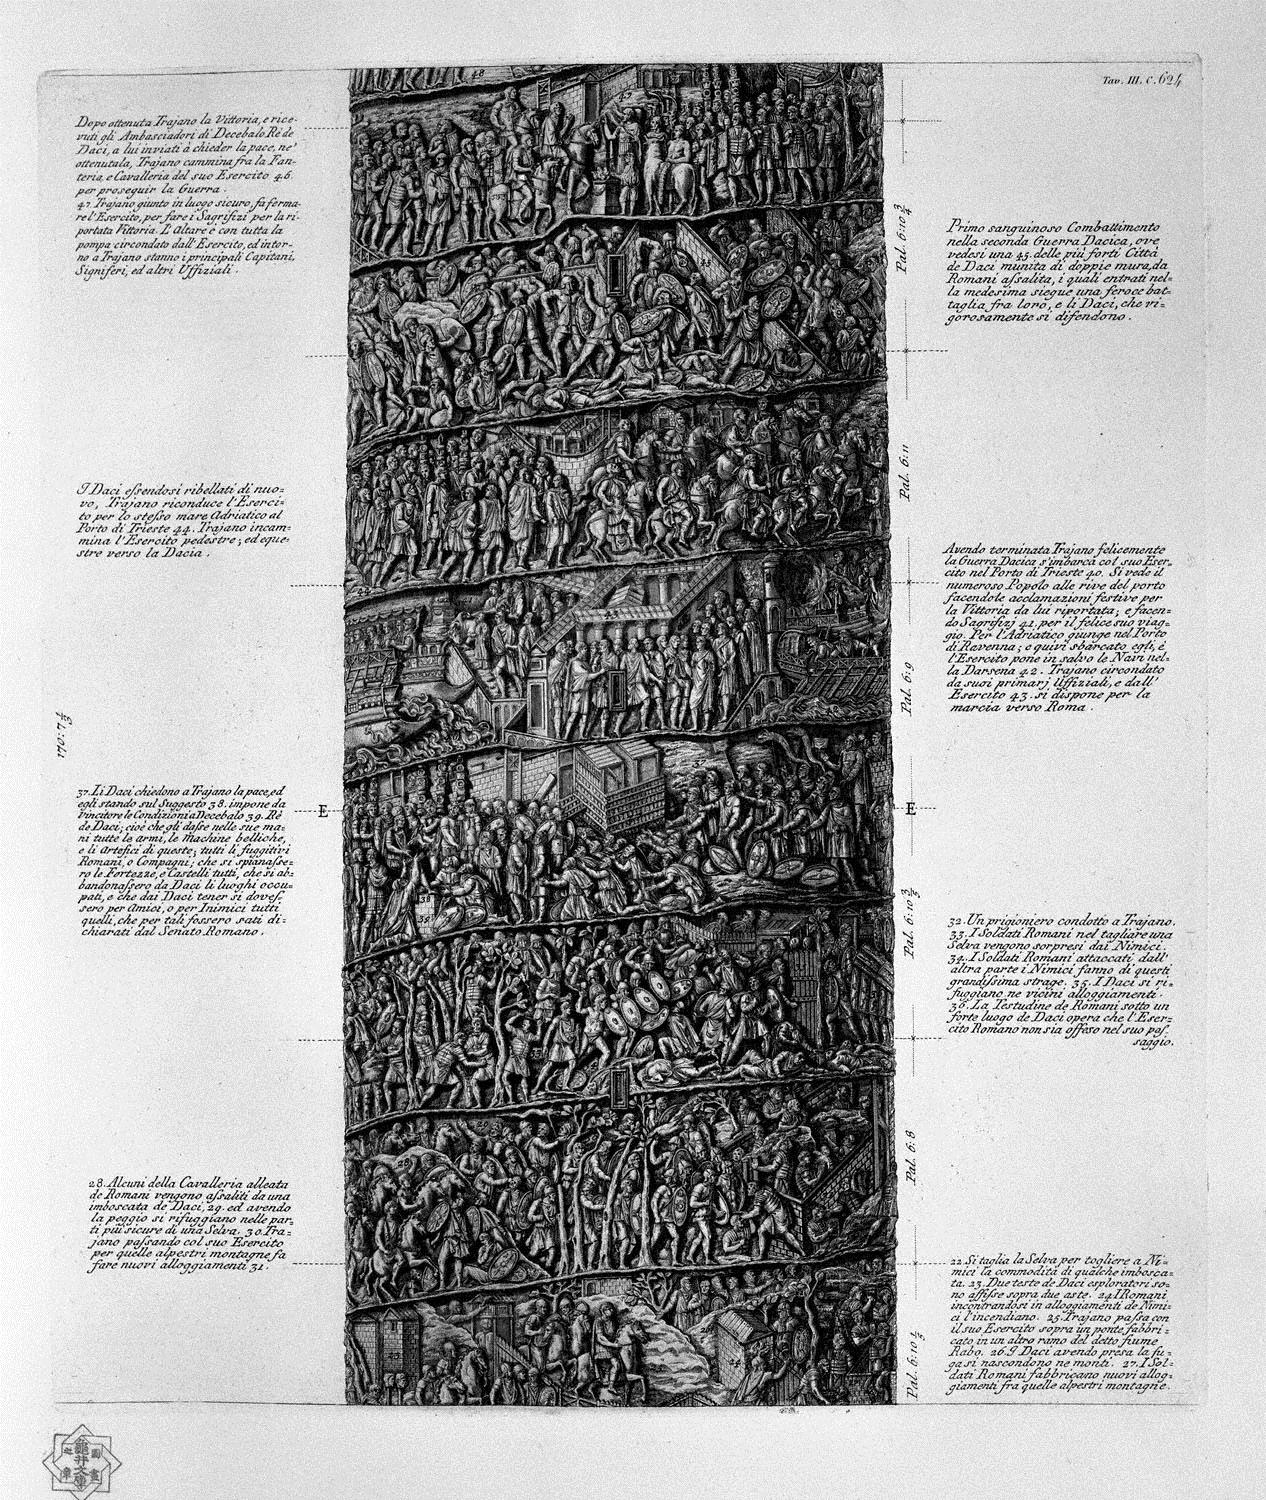 Tav. III. C. 624
Dopo ottenuta Trajano la Vittoria, e rice-
vuti gli Ambasciadori di Decebalo Rè de
Daci, a lui inviati à chieder la pace, ne'
ottenutala, Trajano cammina fra la Fan-
teria, e Cavalleria del suo Esercito 46.
per proseguir la Guerra.
47. Trajano giunto in luogo sicuro, fa ferma-
re l'Esercito, per fare i Sagrifizi per la ri-
portata Vittoria. L'Altare è con tutta la
pompa circondato dall'Esercito, ed intor-
no a Trajano stanno i principali Capitani,
Signiferi, ed altri Uffiziali.
Primo sanguinoso Combattimento
nella seconda Guerra Dacica, ove
vedesi una 45. delle più forti Città
de Daci munita di doppie mura, da
Romani assalita, i quali entrati nel=
la medesima siegue una feroce bat=
taglia fra loro, e li Daci, che vi=
gorosamente si difendono.
I Daci essendosi ribellati di nuo=
vo, Trajano riconduce l'Eserci=
to per lo stesso mare Adriatico al
Porto di Trieste 44. Trajano incam=
mina l'Esercito pedestre; ed eque=
stre verso la Dacia.
Avendo terminata Trajano felicemente
la Guerra Dacica s'imbarca col suo Eser=
cito nel Porto di Trieste 40. Si vede il
numeroso Popolo alle rive del porto
facendole acclamazioni festive per
la Vittoria da lui riportata; e facen=
do Sagrifizj 41. per il felice suo viag=
gio. Per l'Adriatico giunge nel Porto
di Ravenna; e quivi sbarcato egli, e
l'Esercito pone in salvo le Navi nel=
la Darsena 42. Trajano circondato
da suoi primarj Uffiziali, e dall'
Esercito 43. si dispone per la
marcia verso Roma.
37. Li Daci chiedono a Trajano la pace, ed
egli stando sul Suggesto 38. impone da
vincitore le Condizioni a Decebalo 39. Rè
de Daci; cioè che gli dasse nelle sue ma=
ni tutte le armi, le Machine belliche,
e li Artefici di queste; tutti li fuggitivi
Romani, o Compagni; che si spianasse=
ro le Fortezze, e Castelli tutti, che si ab=
bandonassero da Daci li luoghi occu=
pati, e che dai Daci tener si doves=
sero per Amici, o per Inimici tutti
quelli, che per tali fossero stati di=
chiarati dal Senato Romano.
32. Un prigioniero condotto a Trajano.
33. I Soldati Romani nel tagliare una
Selva vengono sorpresi dai Nimici.
34. I Soldati Romani attaccati dall'
altra parte i Nimici fanno di questi
grandissima strage. 35. I Daci si ri=
fuggiano ne vicini alloggiamenti.
36. La Testudine de Romani sotto un
forte luogo de Daci opera che l'Eser=
cito Romano non sia offeso nel suo pas=
saggio.
28. Alcuni della Cavalleria alleata
de Romani vengono assaliti da una
imboscata de Daci, 29. ed avendo
la peggio si rifuggiano nelle par=
ti più sicure di una Selva. 30. Tra=
jano passando col suo Esercito
per quelle alpestri montagne fa
fare nuovi alloggiamenti 31.
22. Si taglia la Selva per togliere a Ni=
mici la commodità di qualche imbosca=
ta. 23. Due teste de Daci esploratori so=
no affisse sopra due aste. 24. I Romani
incontrandosi in alloggiamenti de Nimi=
ci l'incendiano. 25. Trajano passa con
il suo Esercito sopra un ponte fabbri=
cato in un altro ramo del detto fiume
Rabo. 26. I Daci avendo presa la fu=
ga si nascondono ne monti. 27. I Sol=
dati Romani fabbricano nuovi allog=
giamenti fra quelle alpestri montagne.
Pal. 6:10 3/4
Pal. 6:11
Pal. 6:9
Pal. 6:10 3/5
Pal. 6:8
E
E
48
45
38
39